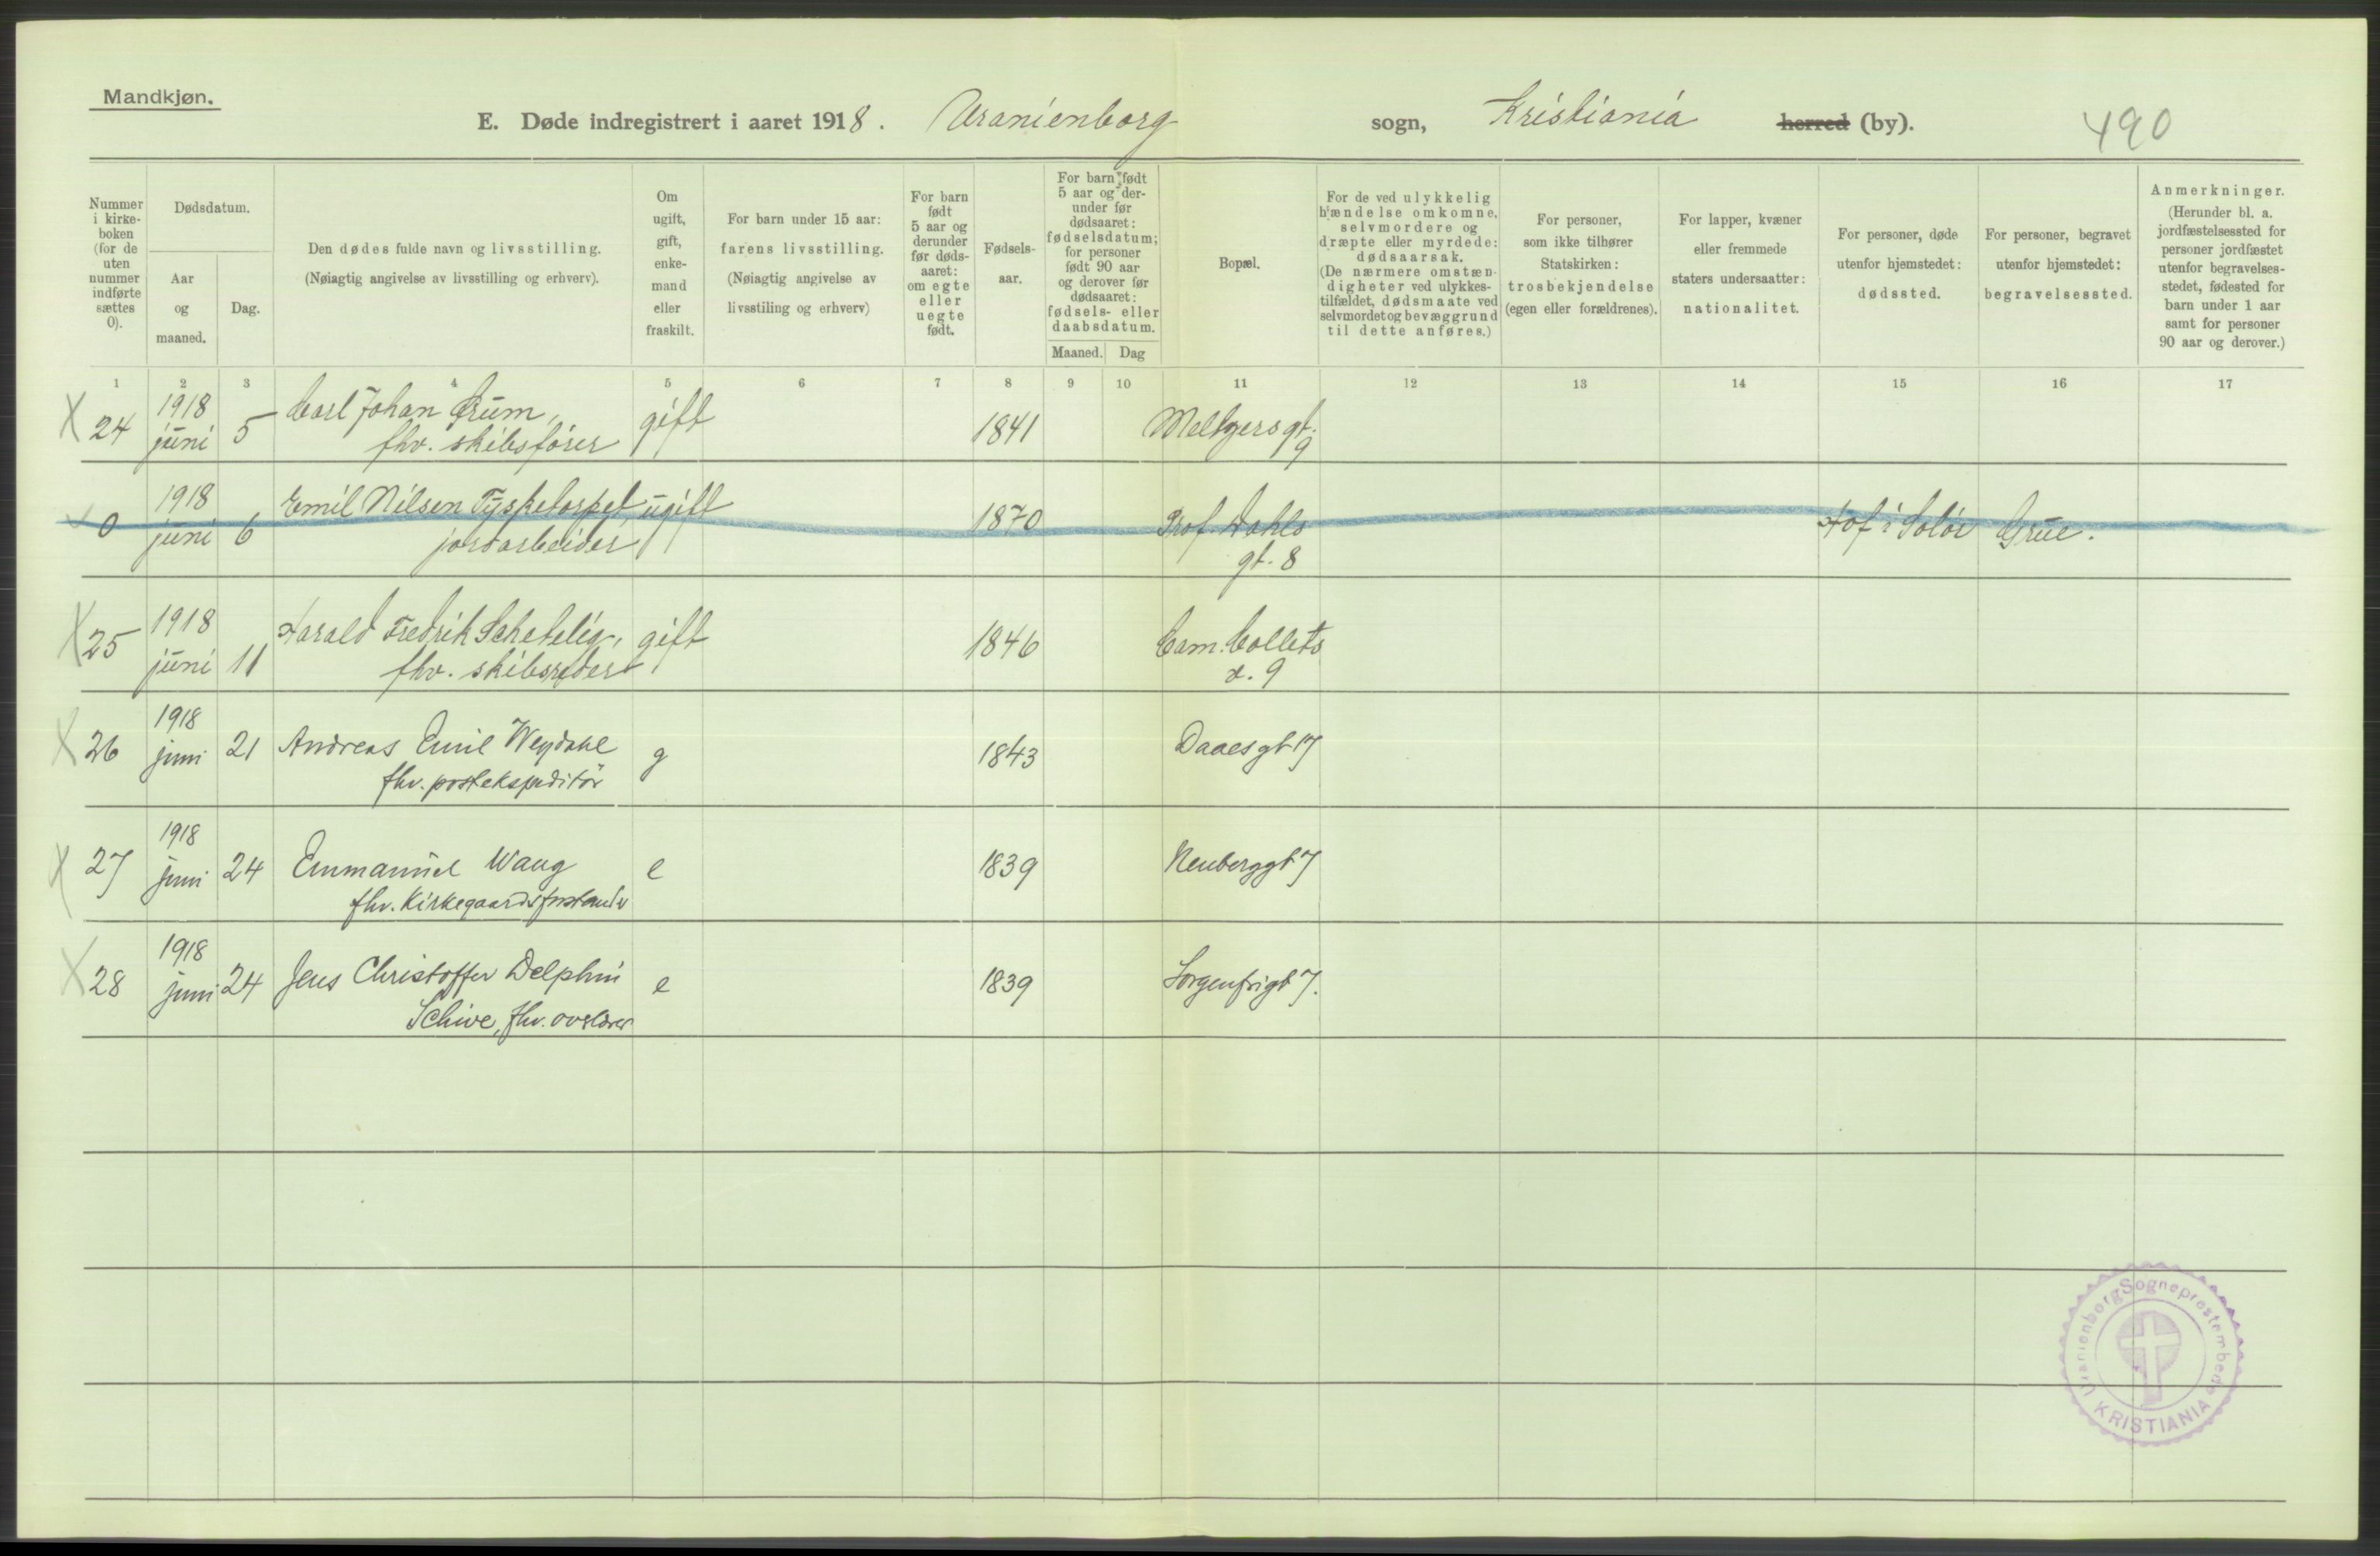 Mandkjøn.
E. Døde indregistrert i aaret 1918. Uranienborg sogn, Kristiania herred (by). 490
Nummer i kirke-boken (for de uten nummer indførte sættes 0).
Dødsdatum.
Aar og maaned.
Dag.
Den dødes fulde navn og livsstilling.
(Nøiagtig angivelse av livsstilling og erhverv).
Om ugift, gift, enke-mand eller fraskilt.
For barn under 15 aar:
farens livsstilling.
(Nøiagtig angivelse av
livsstiling og erhverv)
For barn født 5 aar og derunder før døds-aaret: om egte eller uegte født.
Fødsels-aar.
For barn født 5 aar og der-under før dødsaaret: fødselsdatum; for personer født 90 aar og derover før dødsaaret: fødsels- eller daabsdatum.
Maaned. Dag
Bopæl.
For de ved ulykkelig hændelse omkomne, selvmordere og dræpte eller myrdede: dødsaarsak. (De nærmere omstæn-digheter ved ulykkes-tilfældet, dødsmaate ved selvmordet og bevæggrund til dette anføres.)
For personer, som ikke tilhører Statskirken: trosbekjendelse (egen eller forældrenes).
For lapper, kvæner eller fremmede staters undersaatter: nationalitet.
For personer, døde utenfor hjemstedet: dødssted.
For personer, begravet utenfor hjemstedet: begravelsessted.
Anmerkninger.
(Herunder bl. a. jordfæstelsessted for personer jordfæstet utenfor begravelses-stedet, fødested for barn under 1 aar samt for personer 90 aar og derover.)
1 2 3 4 5 6 7 8 9 10 11 12 13 14 15 16 17
X 24 1918 juni 5 Carl Johan Crum, gift 1841 Meltzersgt.
fhv. skibsfører 9
0 1918 juni 6 Emil Nilsen Tysketorpet, ugift 1870 Prof. Dahls Hof i Solør Grue.
jordarbeider gt. 8
X 25 1918 juni 11 Harald Fredrik Schetelig, gift 1846 Cam. Collets
fhv. skibsreder v. 9
X 26 1918 juni 21 Andreas Emil Weydahl g 1843 Daaesgt 17
fhv. postekspeditör
X 27 1918 juni 24 Emmanuel Wang e 1839 Neuberggt 7
fhv. Kirkegaardsforstander
X 28 1918 juni 24 Jens Christoffer Delphin e 1839 Sorgenfrigt 7.
Schive, fhv. overlærer
Uranienborg Sogneprestembede
KRISTIANIA